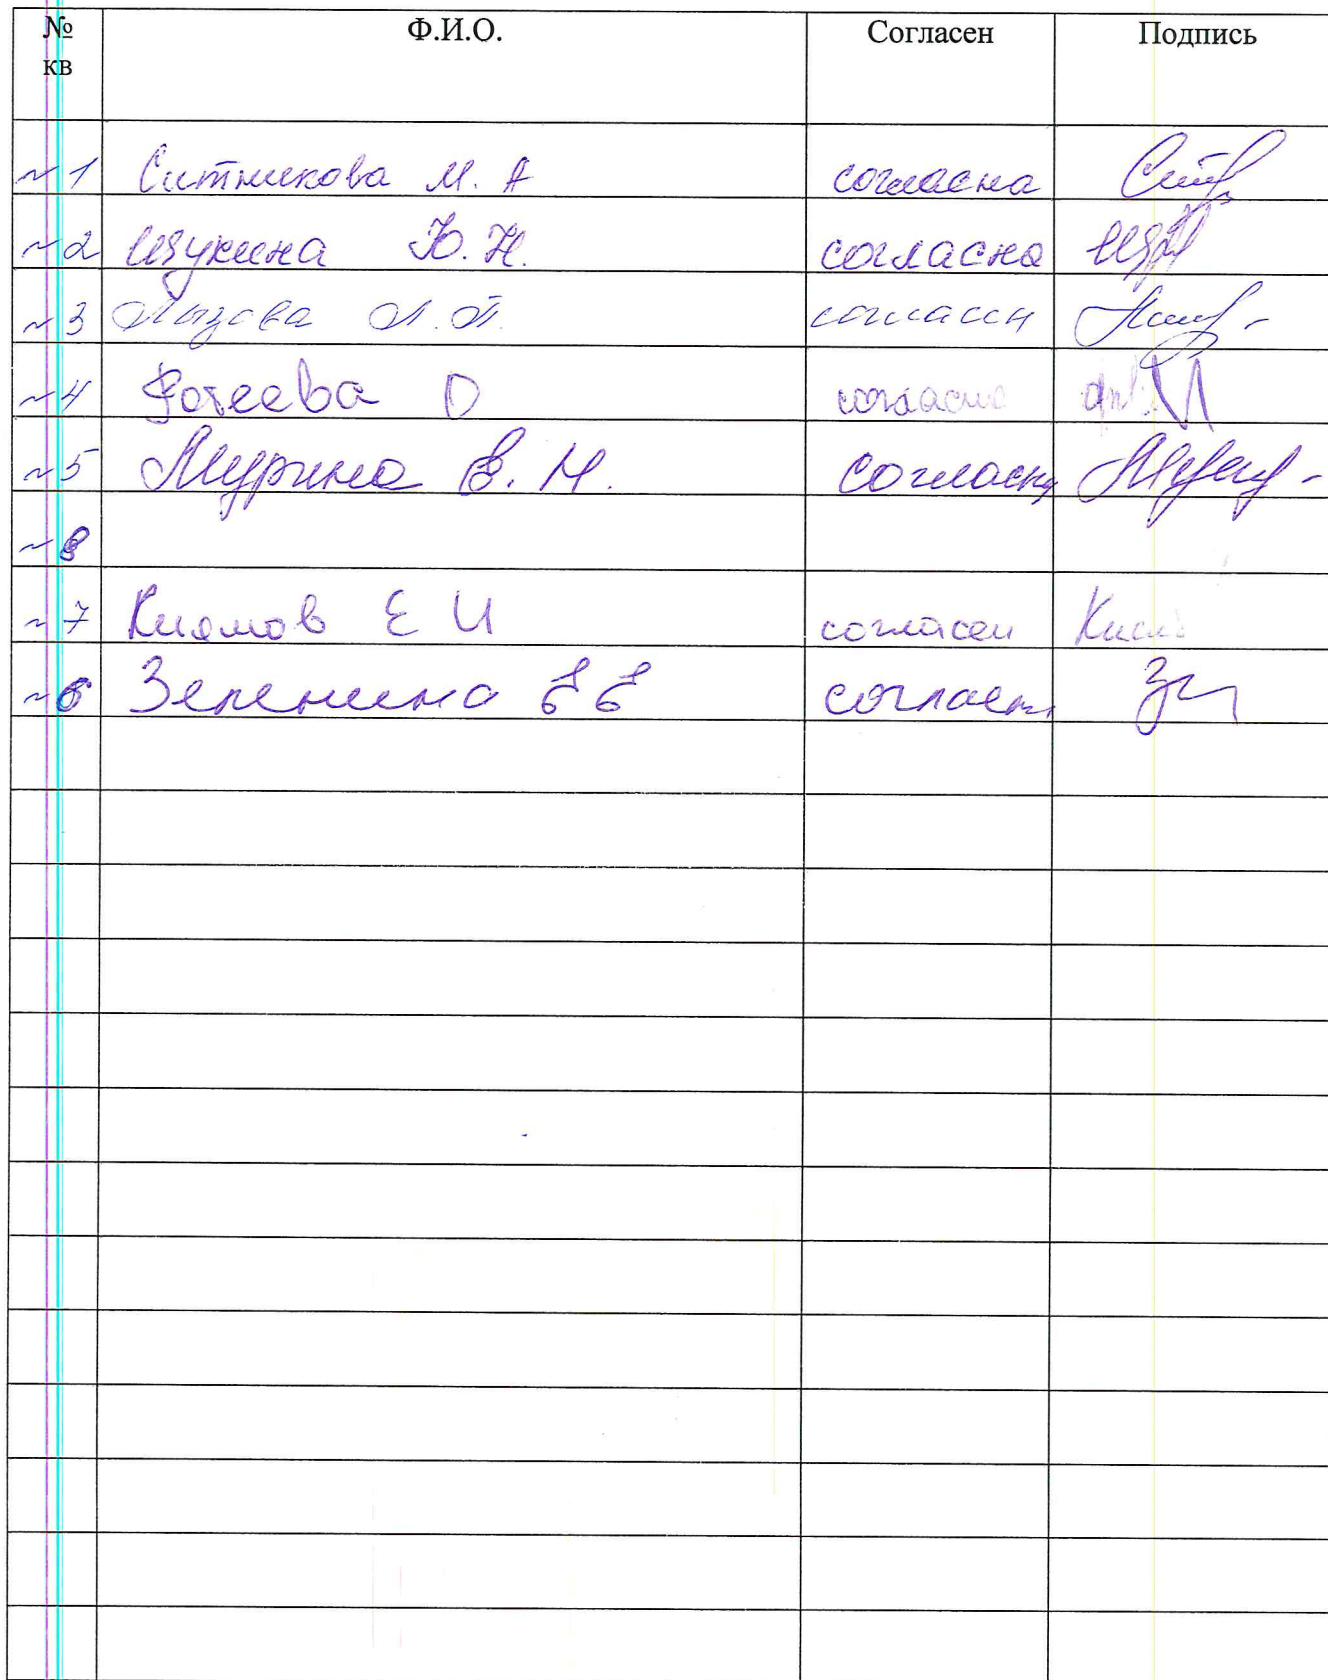 № кв Ф.И.О. Согласен Подпись
№1 Ситникова М. А согласна Сит
№2 Щукина Ю. Н. согласна
№3 Л. П. согласн
№4 Фотеева О согласна
№5 Мурина В. Н. согласна
№8
№7 Киямов Е И согласен Киям
№6 Зеленина Е Е согласн